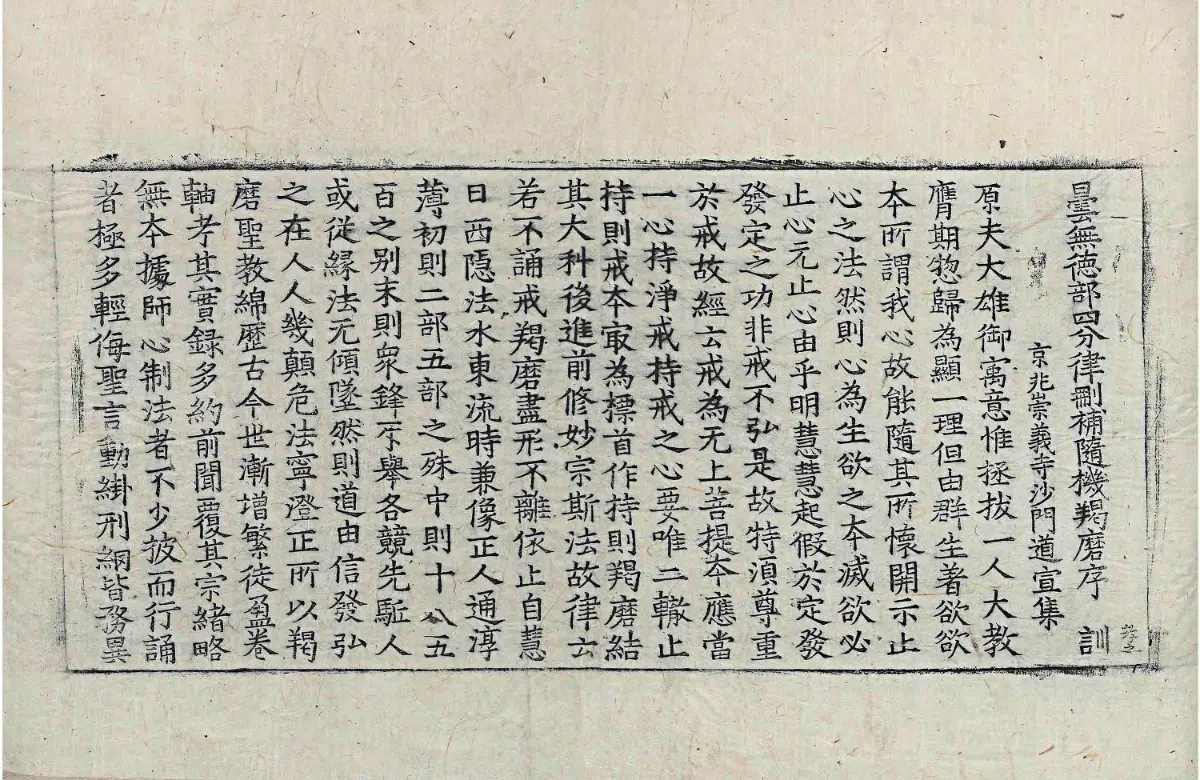 曇無徳部四分律刪補隨機羯磨序　訓
京兆崇義寺沙門道宣集
原夫大雄御寓意惟拯拔一人大教
膺期惣歸為顯一理但由群生著欲欲
本所謂我心故能隨其所懷開示止
心之法然則心為生欲之本滅欲必
止心元止心由乎明慧慧起假於定發
發定之功非戒不弘是故特湏尊重
於戒故經云戒為无上菩提本應當
一心持淨戒持戒之心要唯二轍止
持則戒本㝡為標首作持則羯磨結
其大科後進前修妙宗斯法故律云
若不誦戒羯磨盡形不離依止自慧
日西隱法水東流時兼像正人通淳
薄初則二部五部之殊中則十八五
百之別末則衆鋒互舉各競先駈人
或從緣法无傾墜然則道由信發弘
之在人人幾顛危法寧澄正所以羯
磨聖教綿歷古今世漸增繁徒盈卷
軸考其實録多約前聞覆其宗緒略
無本據師心制法者不少披而行誦
者極多輕侮聖言動掛刑網皆務異